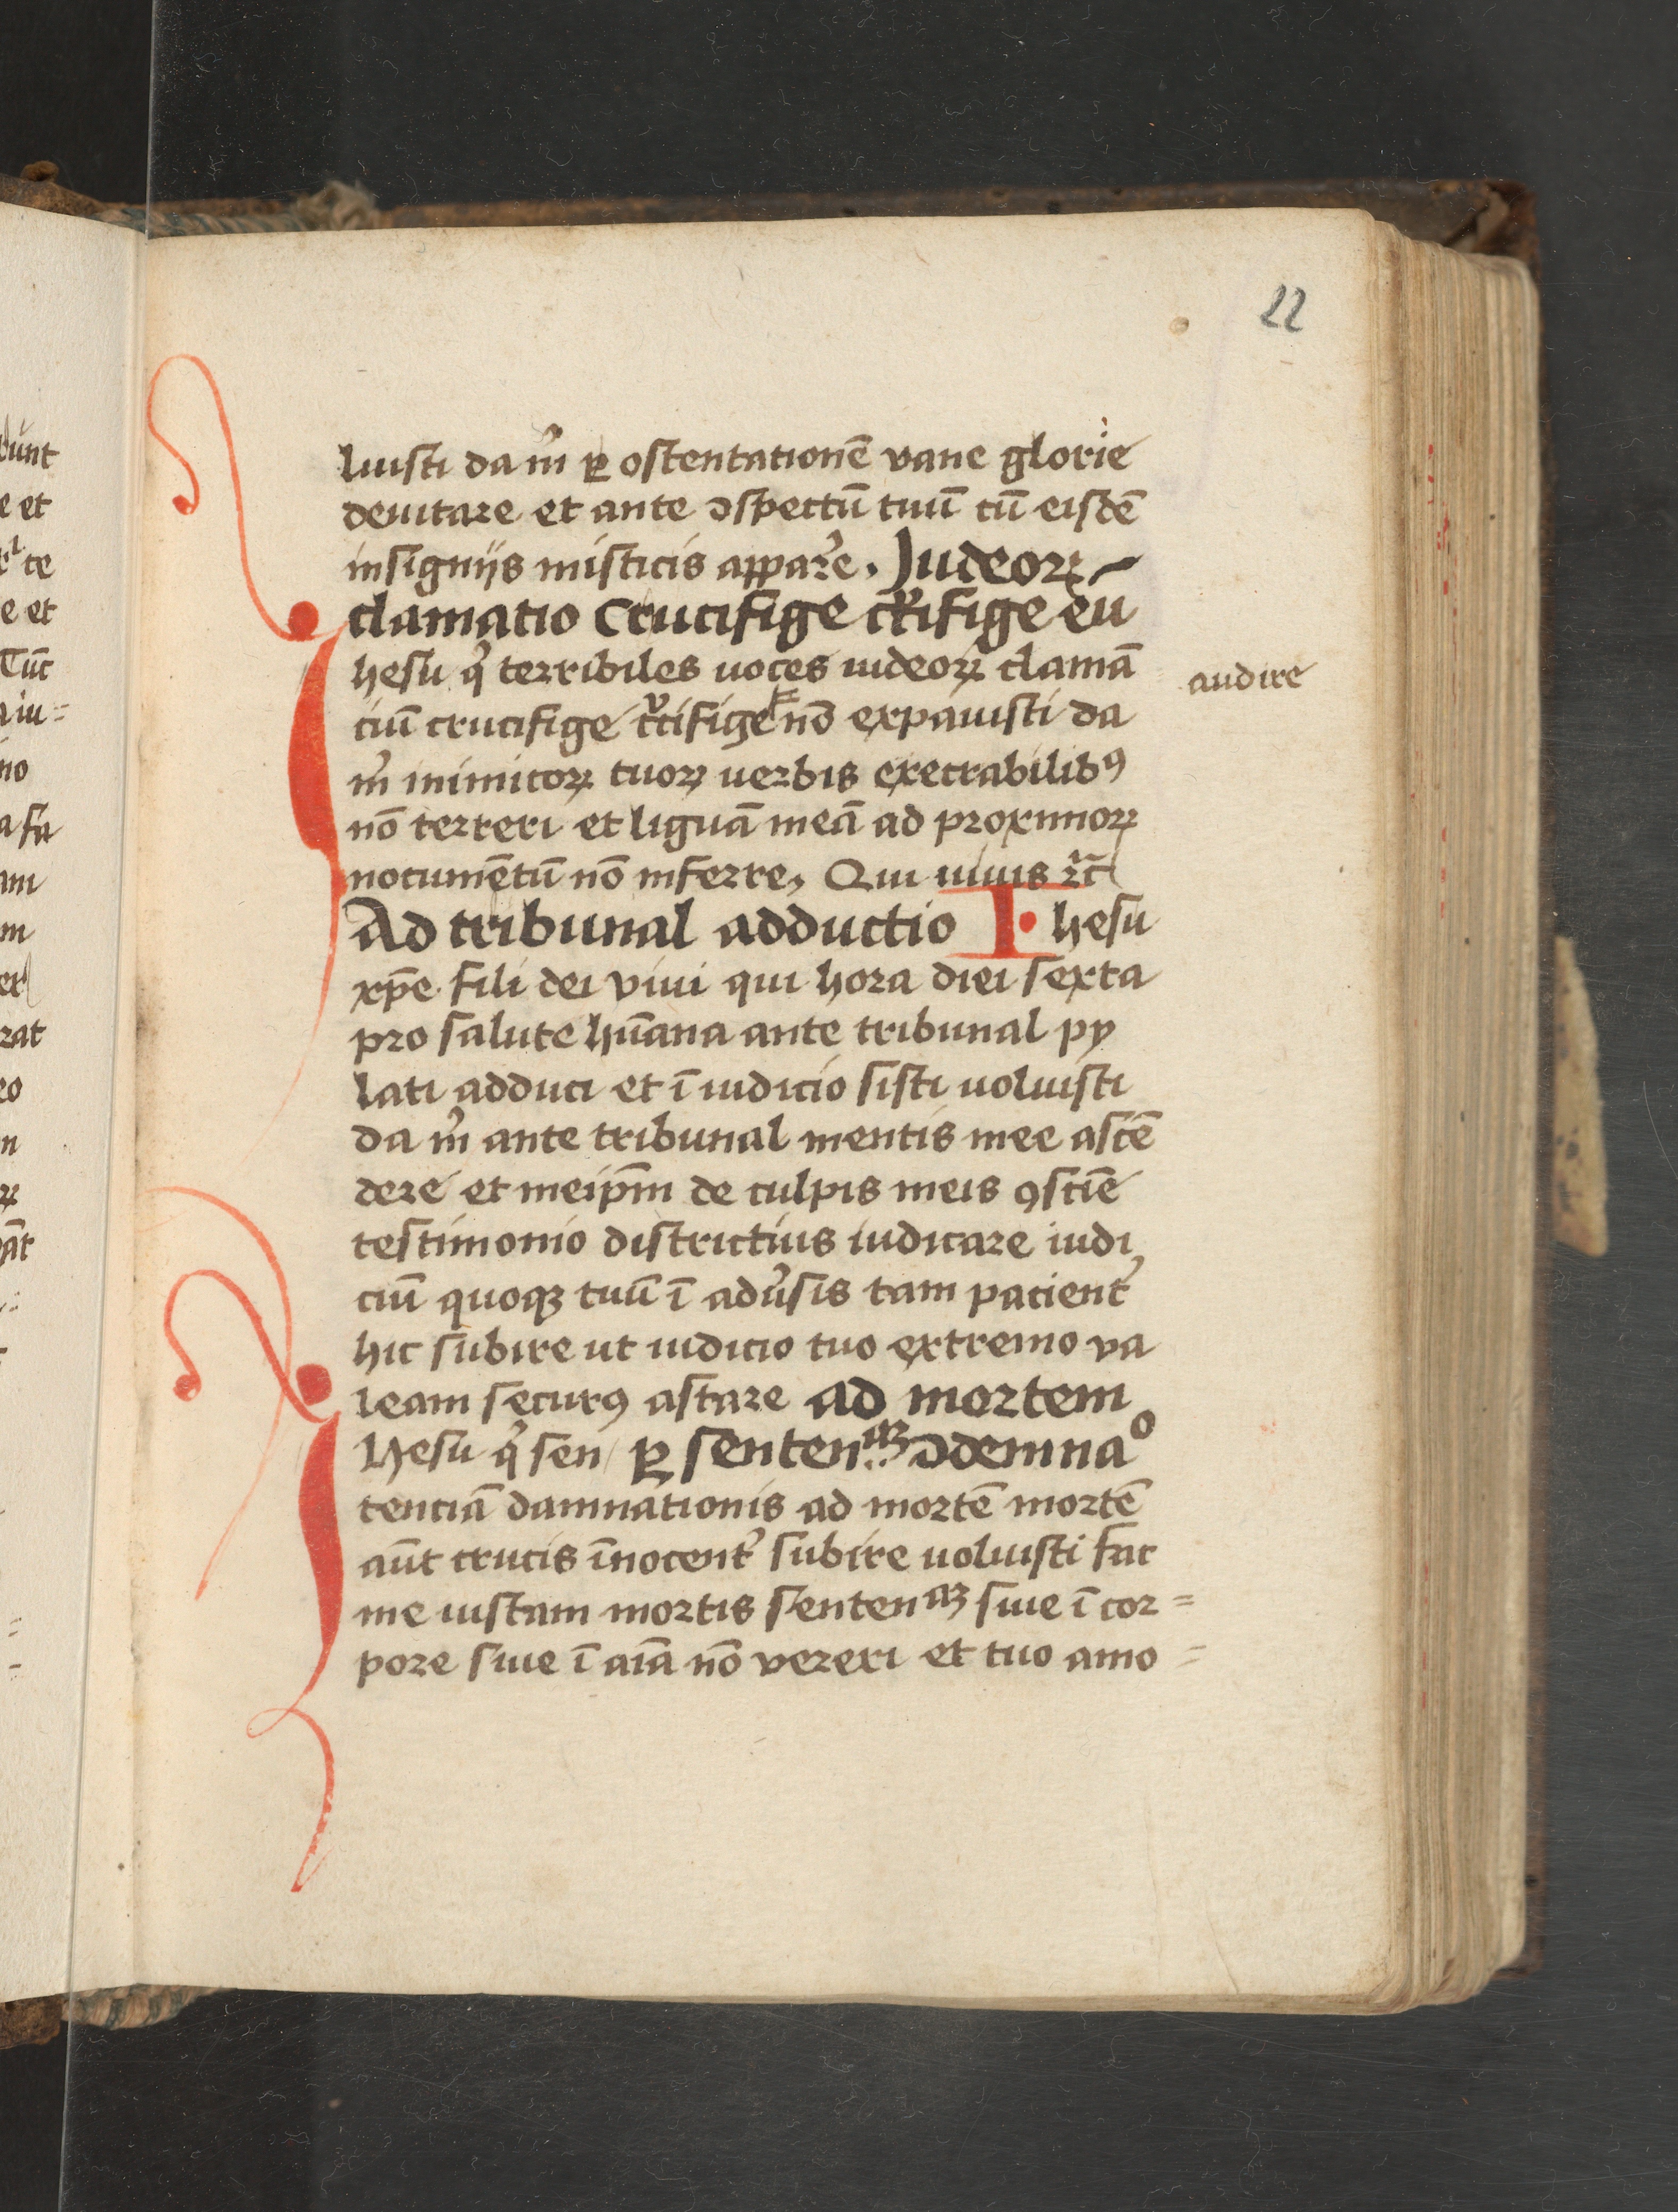 22
luisti da m̉ ꝑ ostentationē vane glorie
deuitare et ante ↄspectū tuū cū eisdē
insignijs misticis appar̉e. Judeoꝝ
clamatio Crucifige cr̉ifige eu
Jhesu q̉ terribiles uoces iudeoꝝ clamā
ciū crucifige cr̉cifige nō expauisti da
audire
m̉ inimicoꝝ tuoꝝ uerbis execrabilibꝰ
nō terreri et liguā meā ad proximoꝝ
nocumētū nō inferre, Qui uiuis ⁊c̄
Ad tribunal adductio I hesu
xp̄e fili dei viui qui hora diei sexta
pro salute hūana ante tribunal py
lati adduci et ī iudicio sisti uoluisti
da m̉ ante tribunal mentis mee ascē
dere et meip̄m de culpis meis ꝯsciē
testimonio districtius iudicare iudi
ciū quoqꝫ tuū ī adủsis tam pacient̉
hic subire ut iudicio tuo extremo va
leam securꝰ astare ad mortem
Jhesu q̉ sen ꝑ sentenaꝫ ↄdemnao
tenciā damnationis ad mortē mortē
aūt crucis īnocent̉ subire uoluisti fac
me iustam mortis sentenaꝫ siue ī cor=
pore siue ī aīa nō vereri et tuo amo=